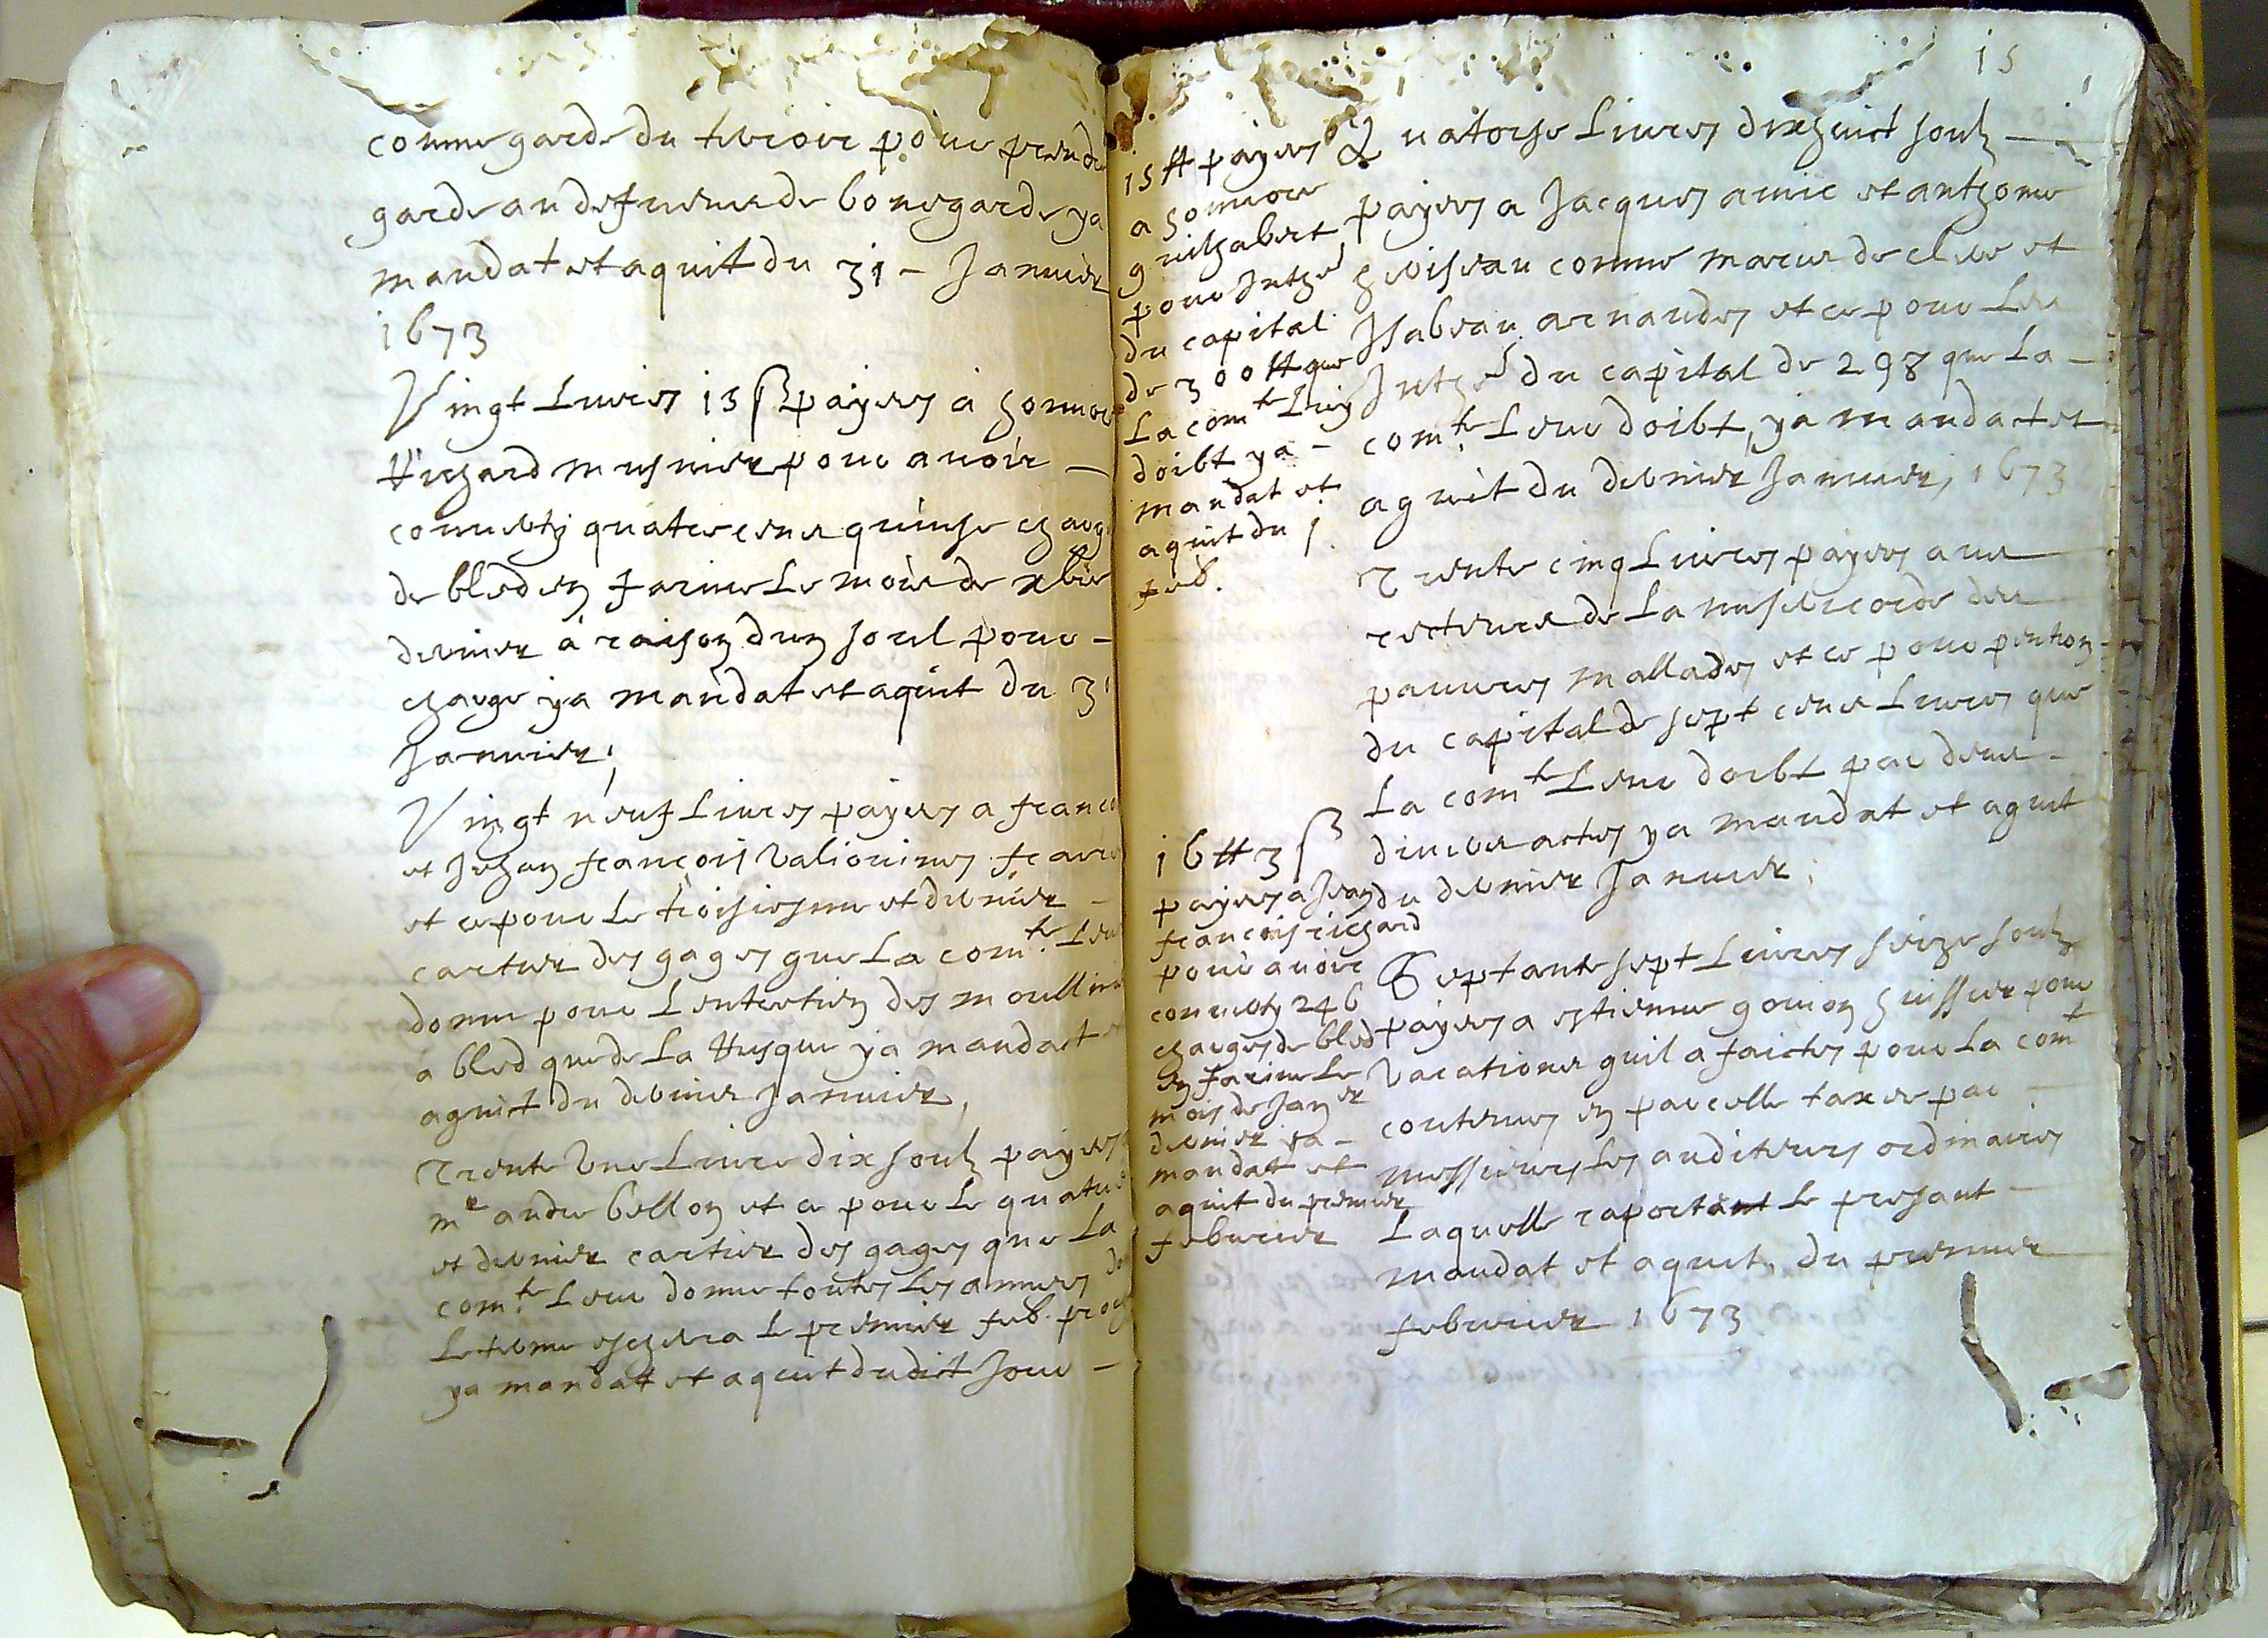 comme garde du terroir pour prendre
garde au de bone garde ya
mandat et aquit du 31 - Januier
1673
Vingt Liures 15 ß payes a honnore
Richard musnier pour auoir -
conuerty quatre cens quinse charges
de bled en farine Le mois de xbre
dernier a raison dun soul pour -
charge ya mandat et aquit du 31
Januier,
Vingt neuf Liures payes a francois
et Jehan francois Valiorines freres
et ce pour Le troisiesme et dernier -
cartier des gages que La comte. Leur
donne pour Lentertien des moullins
a bled que de La Resque ya mandat et
aquict du dernier Januier,
Trente Vne Liure dix soulz payes
me andre bellon et ce pour Le quatries
et dernier cartier des gages que La
comte. Leur donne toutes Les annees
Le terme eschera Le premier feb. proch
ya mandat et aquit dudict Jour -
15
15 ₶ payes
a honnore
guilhabert
pour Inthes
du capital
de 300 ₶ que
La comte Luy
doibt ya -
mandat et
aquit du 1.
feb.
Quatorse Liures dixhuict soulz -
payes a Jacques amic et anthome
heoiseau comme maris de clere et
Isabeau arnaudes et ce pour Les
Inthes du capital de 298 que La -
comte. Leur doibt, ya mandat et
aquit du dernier Januier, 1673
Trente cinq Liures payes aus
recteurs de La misericorde des
pauures mallades et ce pour pention
du capital de sept cens Liures que
La comte Leur doibt par deux -
diuers actes ya mandat et aquit
du dernier Januier,
16 ₶ 3 ß
payes a Jean
francois richard
pour auoir
conuerty 246
charges de bled
en farine Le
mois de Janer
dernier ya -
mandat et
aquit du premier
feburier
Septante sept Liures seize soulz
payes a estienne gouion huissier pour
Vacations quil a faictes pour La comte
contenues en parcelle taxee par -
messieurs Les auditeurs ordinaires
Laquelle raportant Le presant -
mandat et aquit. du premier
feburier 1673